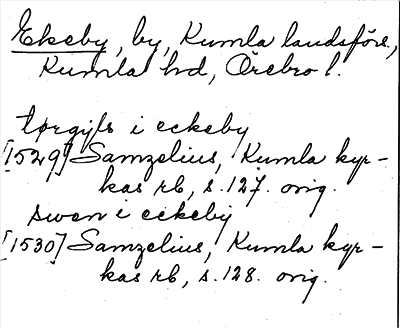 Ekeby, by, Kumla landsförs.,
Kumla hd, Örebro l.
torgijls i eckeby
[1529] Samzelius, Kumla kyr-
kas rb, s. 127. orig.
swen i eckeby
[1530] Samzelius, Kumla kyr-
kas rb, s. 128. orig.